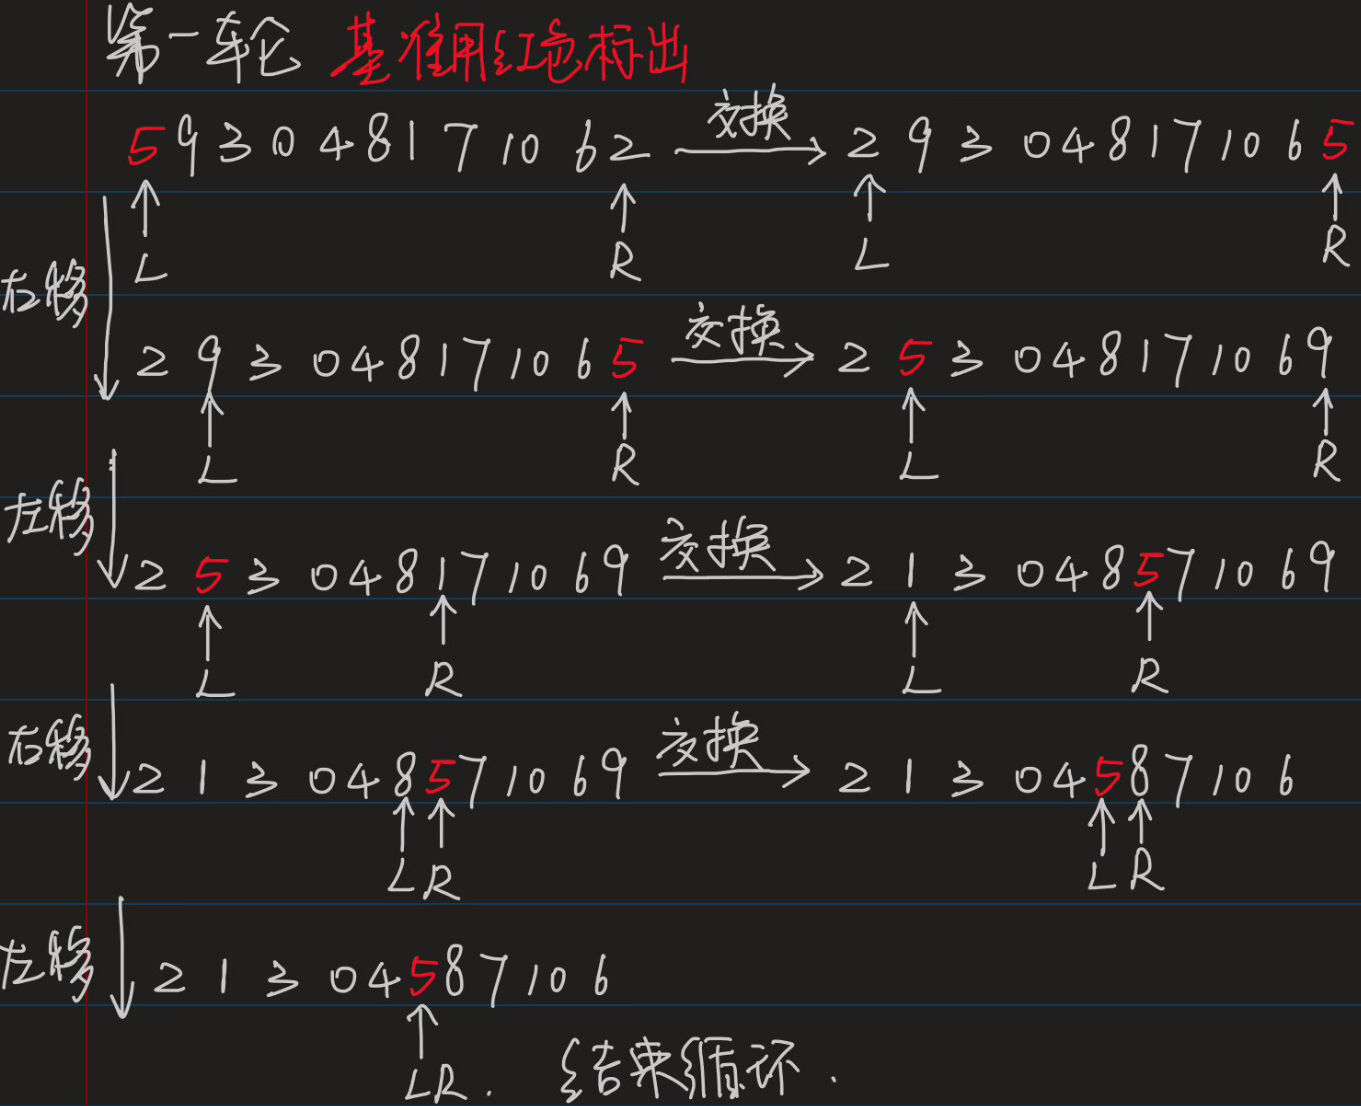 第一轮 基准用红色标出
5 9 3 0 4 8 1 7 10 6 2 交换 2 9 3 0 4 8 1 7 10 6 5
L R L R
右移
2 9 3 0 4 8 1 7 10 6 5 交换 2 5 3 0 4 8 1 7 10 6 9
L R L R
左移
2 5 3 0 4 8 1 7 10 6 9 交换 2 1 3 0 4 8 5 7 10 6 9
L R L R
右移
2 1 3 0 4 8 5 7 10 6 9 交换 2 1 3 0 4 5 8 7 10 6
L R L R
左移
2 1 3 0 4 5 8 7 10 6
LR. 结束循环.